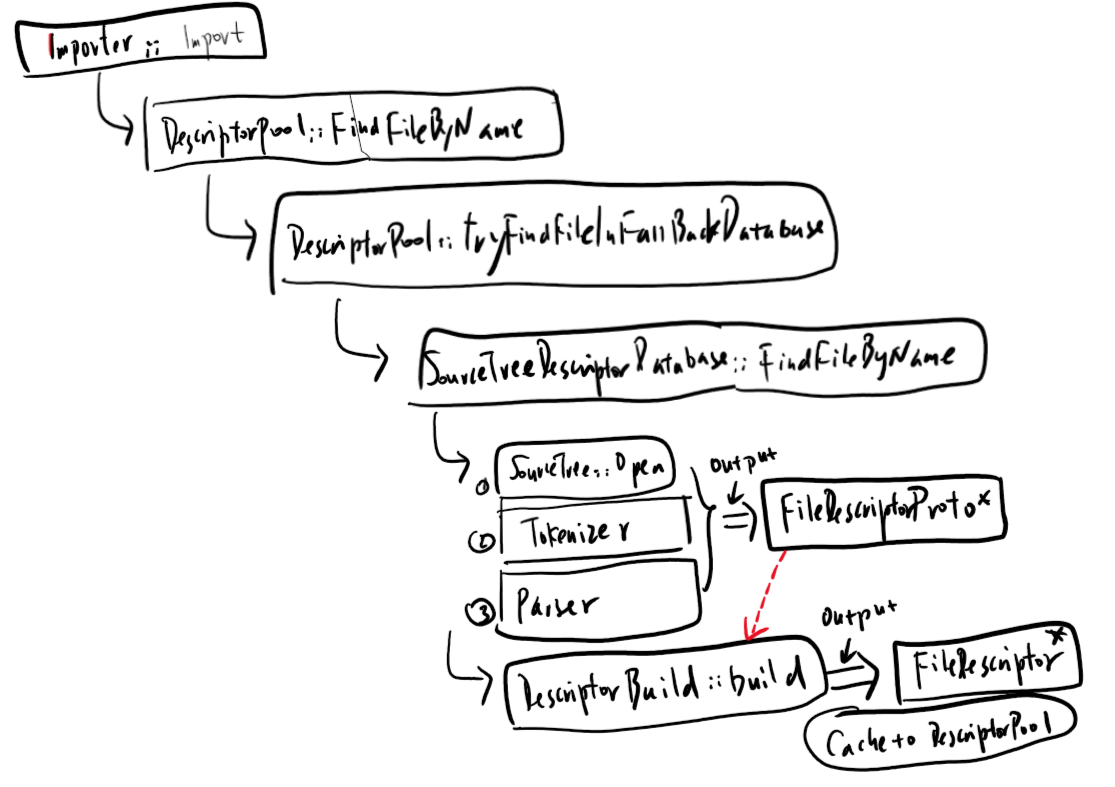 Importer :: Import
DescriptorPool :: FindFileByName
DescriptorPool :: tryFindFileInFallBackDatabase
SourceTreeDescriptorDatabase :: FindFileByName
① SourceTree :: Open
output
FileDescriptorProto*
② Tokenizer
③ Parser
output
DescriptorBuild :: build
FileDescriptor*
Cache to DescriptorPool